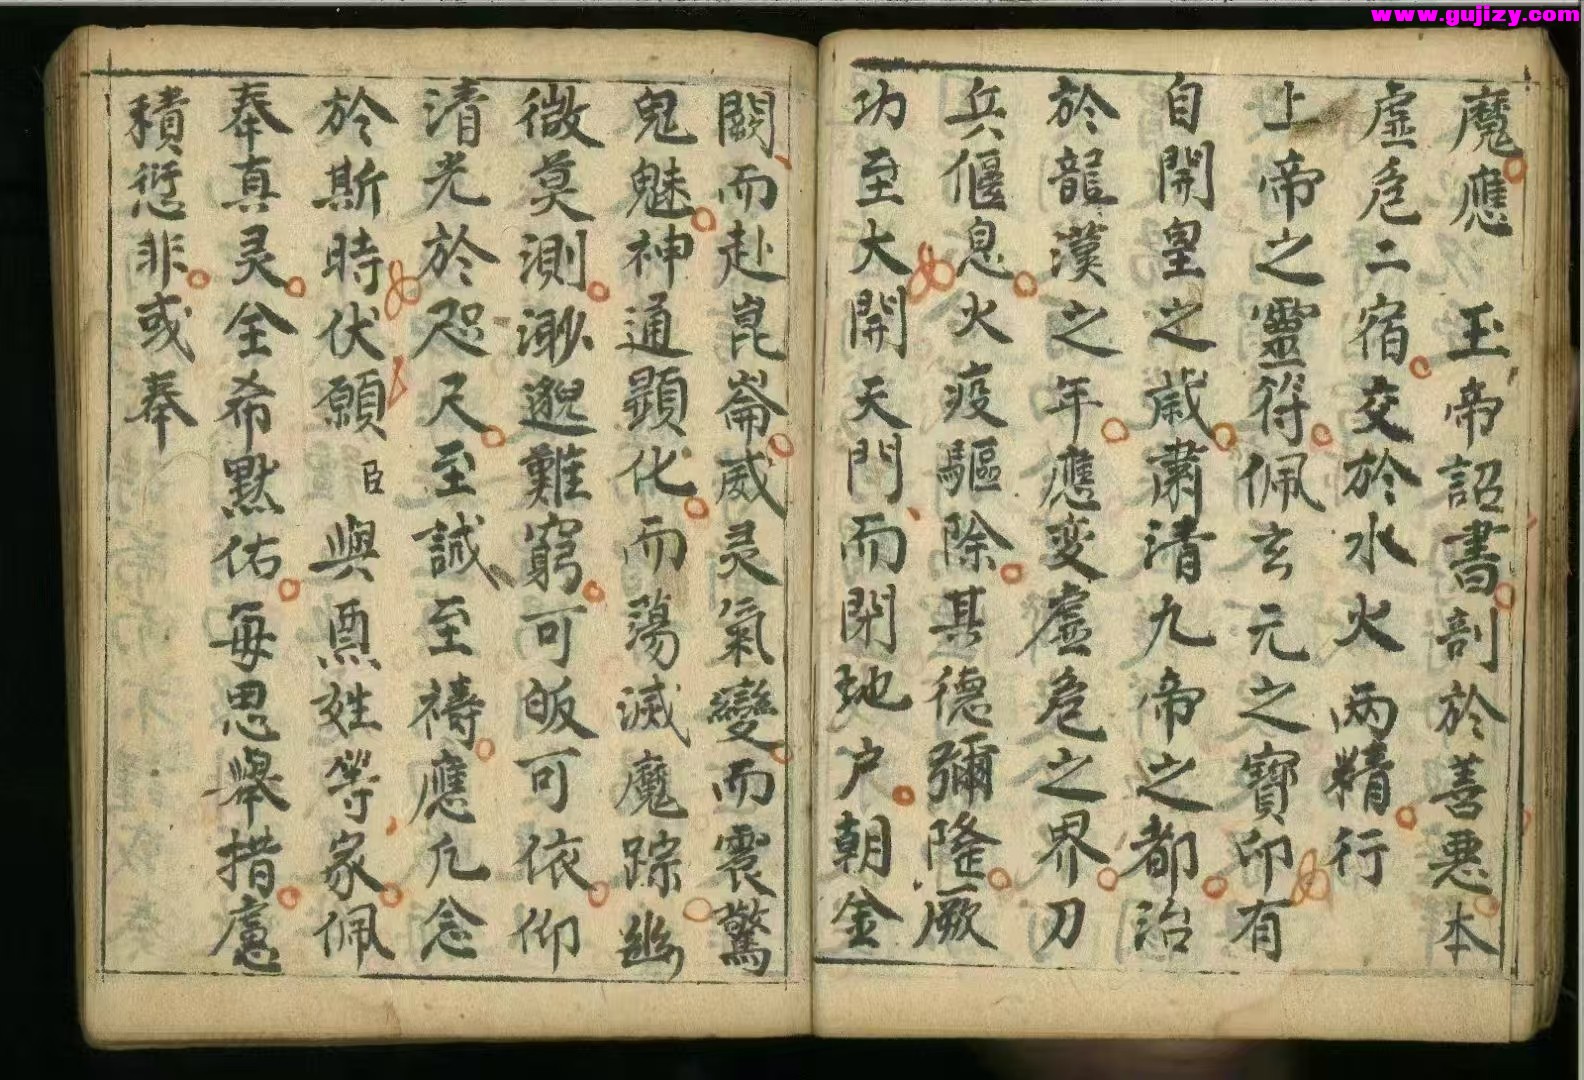 www.gujizy.com
魔應　玉帝詔書剖於善惡本
虛危二宿交於水火兩精行
上帝之靈符佩玄元之寶印有
自開皇之歲肅清九帝之都治
於龍漢之年應变虛危之界刀
兵偃息火疫驅除其德彌隆厥
功至大開天門而閉地户朝金
闕而赴崑崙威灵氣變而震驚
鬼魅神通顯化而蕩滅魔踪幽
微莫測渺邈難窮可皈可依仰
清光於咫尺至誠至禱應凢念
於斯時伏願臣與酉姓等家佩
奉真灵全希默佑每思舉措慮
積愆非或奉